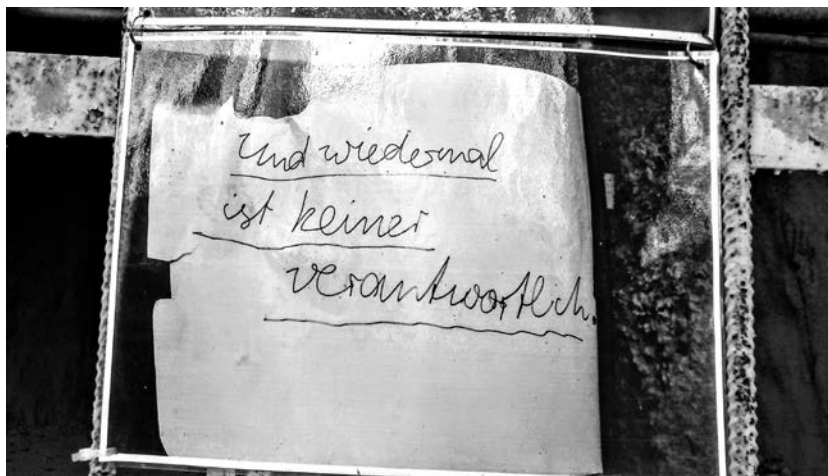 Und wiedermal
ist keiner
verantwortlich.